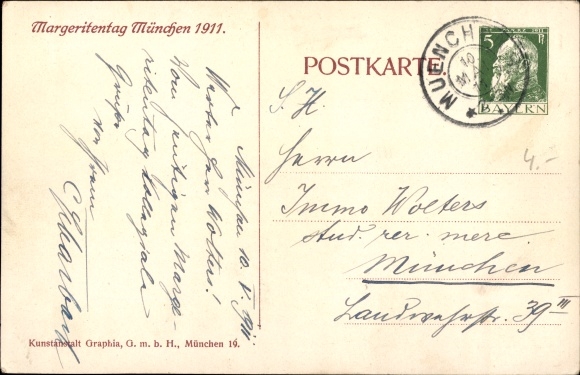 Margeritentag München 1911.
München 10. V. 1911
Werter Herr Wolters!
Vom heutigen Marge-
ritentag
Grüße
von Ihrem
POSTKARTE.
MUENCH
5 Pf
BAYERN
4.-
S. H.
Herrn
Immo Wolters
stud. rer. merc.
München
Landwehrstr. 39 III
Kunstanstalt Graphia, G. m. b. H., München 19.